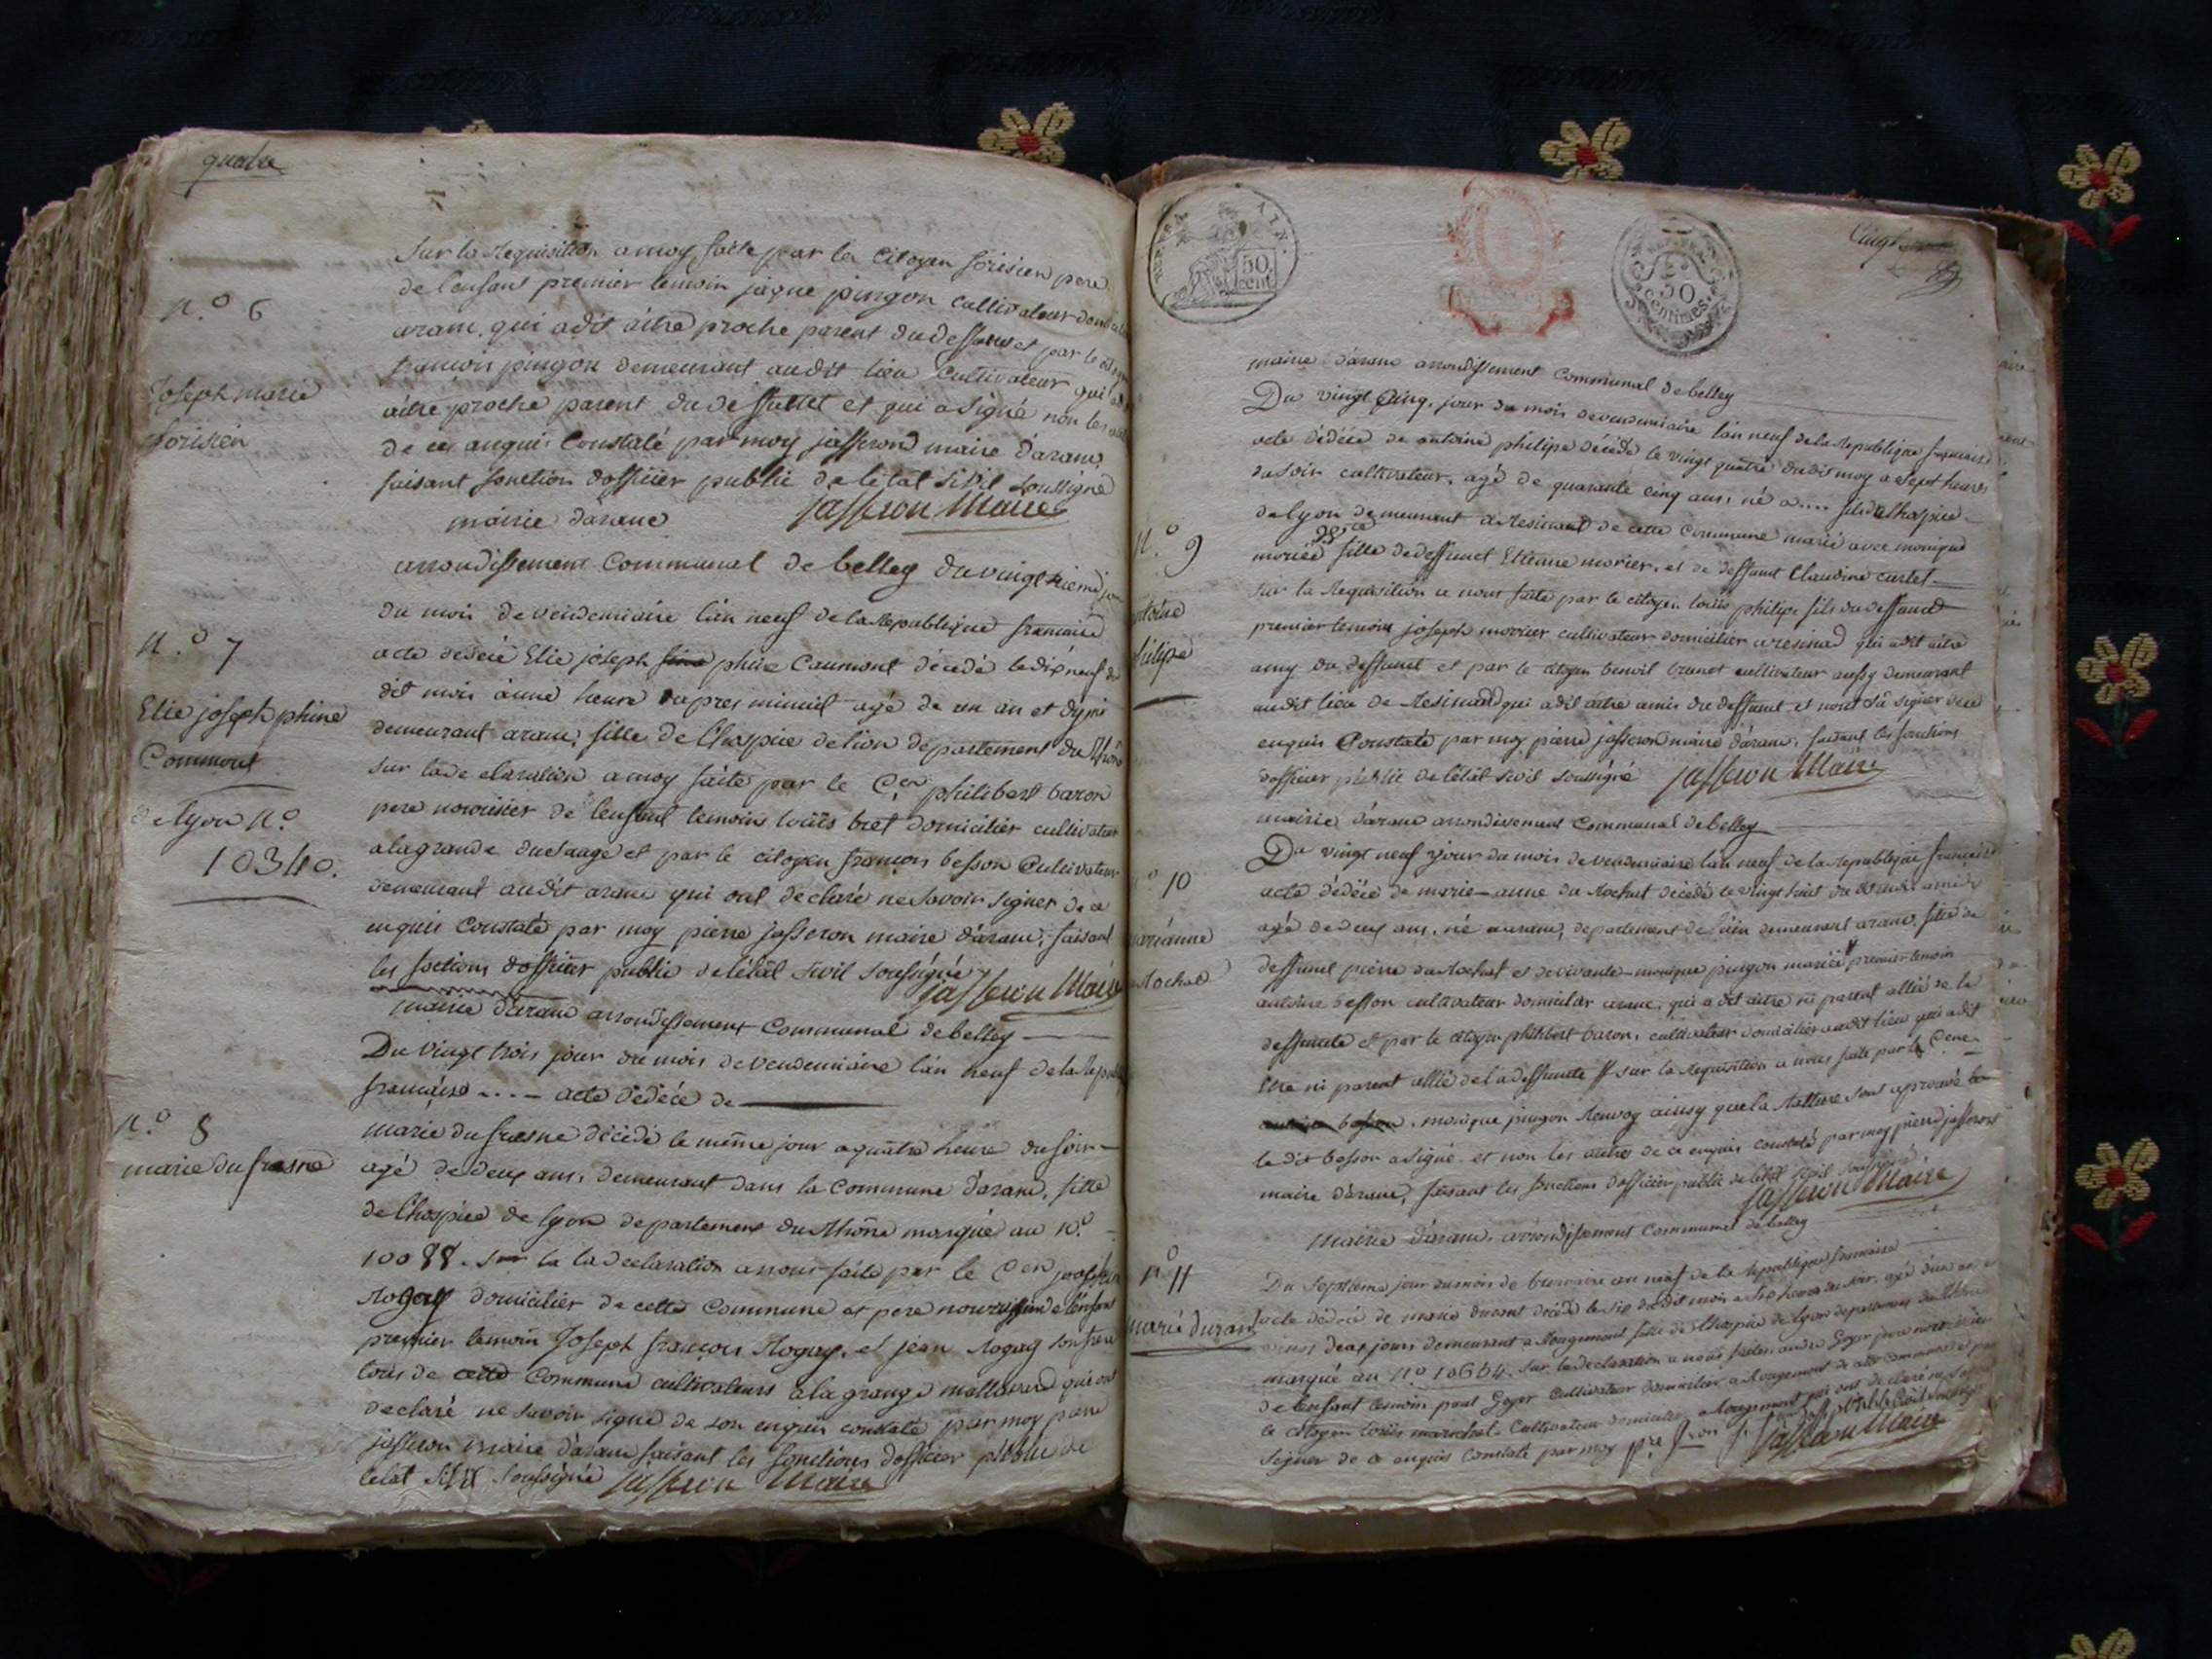 quatre
Sur la Requisition a moy faite par le Citoyen forisien pere
de lenfant premier temoin jaque pingon cultivateur
aranc. qui a dit aitre proche parent du deffunt et par le
francois pingon demeurant audit lieu Cultivateur qui
aitre proche parent du deffunt et qui a signé non les
de ce anquis Constaté par moy jasseron maire d'aranc,
faisant fonction dofficier public de letat sivil soussigné
N.o 6
Joseph marie
forisien
Jasseron Maire
mairie d'aranc
arrondissement Communal de belley du vingtieme
du mois de vendemiaire l'an neuf de la Republique francaise
acte dedécé Elie joseph phine Caumont décédé le dix neuf du
dit mois a une heure apres minuit agé de un an et dymi
demeurant aranc, fille de lhospice de lion departement du Rhône
sur la de claration a moy faite par le Cen philibert baron
pere nourisier de lenfant temoins loüis bret domicilier cultivateur
a la grande et par le citoyen francois besson Cultivateur
demeurant audit aranc qui ont declaré ne savoir signer de ce
enquis Constaté par moy pierre jasseron maire d'aranc, faisant
les foctions dofficier public de létat sivil soussigné
N.o 7
Elie joseph phine
Commont
de lyon N.o
10340.
Jasseron Maire
mairie d'aranc arrondissement Communal de belley
Du vingt trois jour du mois de vendemiaire l'an neuf de la
francaise ... acte dédécé de
marie du fresne décédé le même jour a quatre heure du soir
agé de deux ans, demeurant dans la Commune d'aranc, fille
de lhospice de lyon departement du Rhône marqué au N.o
10088. sur la la declaration a nous faite par le Cen joseph
Rogay domicilier de cette Commune et pere nourissier de lenfant
premier temoin Joseph francois Rogay, et jean Rogay son frere
tous de cette Commune cultivateurs a la grange mollard qui ont
declaré ne savoir signé de son enquis constaté par moy pierre
jasseron maire d'aranc faisant les fonctions dofficier public de
letat sivil soussigné Jasseron Maire
N.o 8
marie du fresne
AIN.
50
cent
50
centimes.
mairie d'aranc arrondissement Communal de belley
Du vingt Cinq, jour du mois de vendemiaire l'an neuf de la Republique francaise
acte dédécé de antoine philipe décédé le vingt quatre dudit moy a sept heures
du soir cultivateur, agé de quarante cinq ans, né a .... fils de lhospice
de lyon demeurant a Resinand de cette Commune marié avec monique
morier fille de deffunct Etienne morier, et de deffunt Claudine curtet
sur la Requisition a nous faite par le citoyen loüis philipe fils du deffunct
premier temoin joseph morier cultivateur domicilier a resinad qui a dit aitre
amy du deffunct et par le citoyen benoit brunet cultivateur aussy demeurant
audit lieu de Resinand qui a dit aitre amis du deffunct et nont sû signer de ce
enquis Constaté par moy pierre jasseron maire d'aranc, faisant les fonctions
dofficier public de létat sivil soussigné Jasseron Maire
N.o 9
philipe
mairie d'aranc arrondissement Communal de belley
Du vingt neuf jour du mois de vendemiaire l'an neuf de la Republique francaise
acte dédécé de marie-anne du Rochat décédé le vingt huit du
agé de deux ans, né a aranc, departement de l'ain demeurant aranc, fille de
deffunct pierre du Rochat et de vivante monique pingon mariée premier temoin
antoine besson cultivateur domicilier aranc, qui a dit aitre ni parent allié de la
deffuncte et par le citoyen philibert baron, cultivateur domicilier audit lieu qui a dit
être ni parent allié de la deffuncte sur la Requisition a nous faite par la Cene
monique pingon Renvoy ainsy que la Rature sont aprouvé
le dit besson a signé et non les autres de ce enquis constaté par moy pierre jasseron
maire d'aranc, faisant les fonctions dofficier public de létat sivil soussigné
Jasseron Maire
10
marianne
Rochat
mairie d'aranc, arrondissement Communal de belley
Du septieme jour du mois de brumaire an neuf de la Republique francaise
acte dédécé de marie durant décédé le six du dit mois a six heures du soir, agé d'un an
deux jours demeurant a Rougemont fille de lhospice de lyon departement du Rhône
marqué au N.o 10664. sur la declaration a nous faite, andre Goyer pere nourissier
de lenfant temoin paul Goyer Cultivateur domicilier a Rougemont de cette commune et par
le citoyen loüis marechal Cultivateur domicilier a Rougement qui ont declaré ne savoir
signer de ce enquis Constaté par moy
Jasseron Maire
N.o 11
marie durant